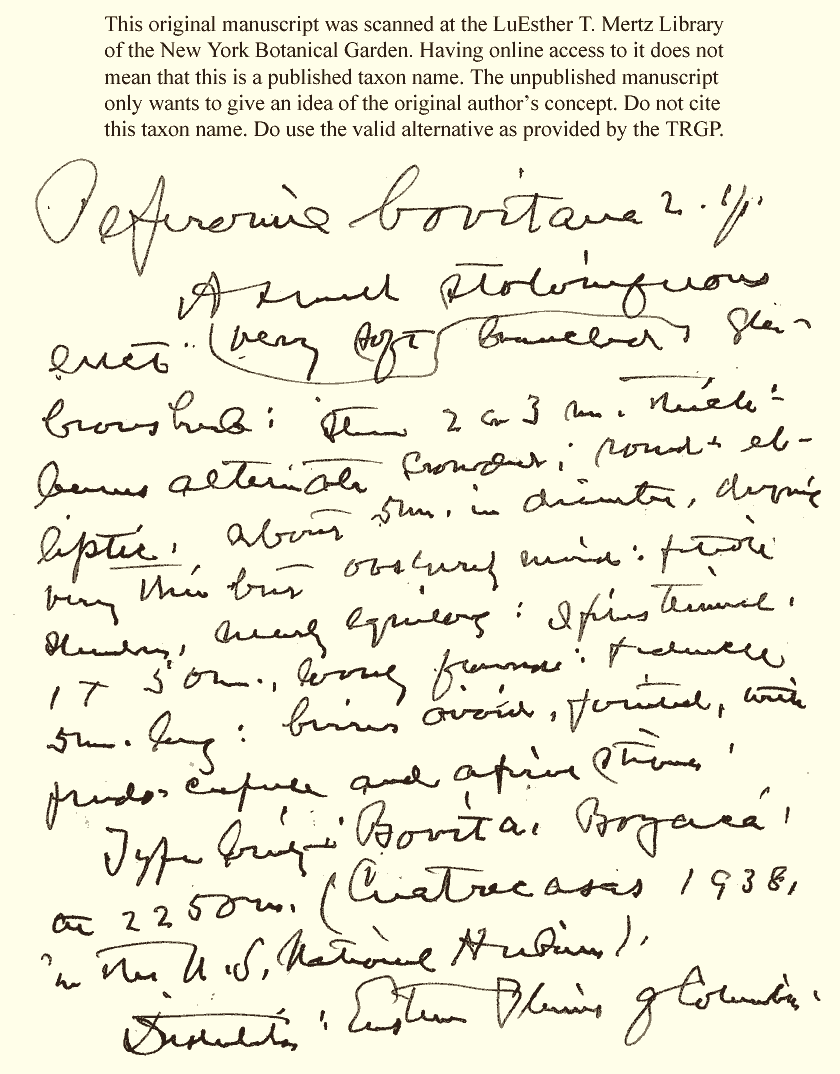 This original manuscript was scanned at the LuEsther T. Mertz Library
of the New York Botanical Garden. Having online access to it does not
mean that this is a published taxon name. The unpublished manuscript
only wants to give an idea of the original author's concept. Do not cite
this taxon name. Do use the valid alternative as provided by the TRGP.
Peperomia bovitana n. sp.
A small stoloniferous
erect (very soft branched, gla-
brous herb: stem 2 or 3 mm. thick:
leaves alternate crowded; round-el-
liptic, about 5 mm. in diameter, drying
very thin but obscurely nerved: petiole
slender, nearly equilong: spikes terminal,
1 x 50 mm., loosely flowered: peduncle
5 mm. long: berries ovoid, pointed, with
pseudo-cupule and apical stigma.
Type from Bovita, Boyacá,
at 2250 m. (Cuatrecasas 1938,
in the U.S. National Herbarium).
Eastern Plains of Colombia.